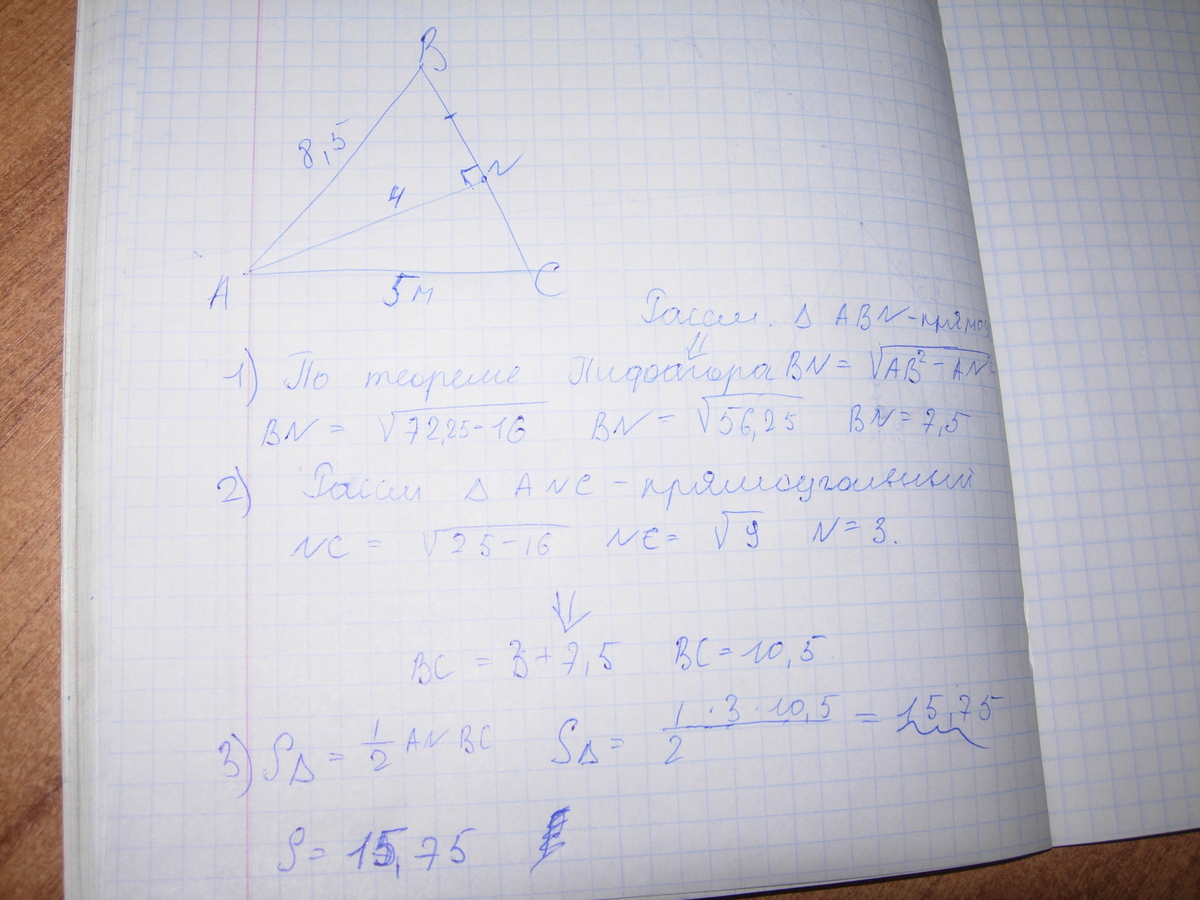 B
8,5
4
N
A
5м
C
Рассм. Δ ABN - прямоу
⇓
1) По теореме Пифагора BN = √AB² - AN²
BN = √72,25 - 16 BN = √56,25 BN = 7,5
2) Рассм Δ ANC - прямоугольный
NC = √25 - 16 NC = √9 N = 3.
⇓
BC = 3 + 7,5 BC = 10,5
3) SΔ = 1/2 AN BC SΔ = 1/2 · 3 · 10,5 = 15,75
S = 15,75